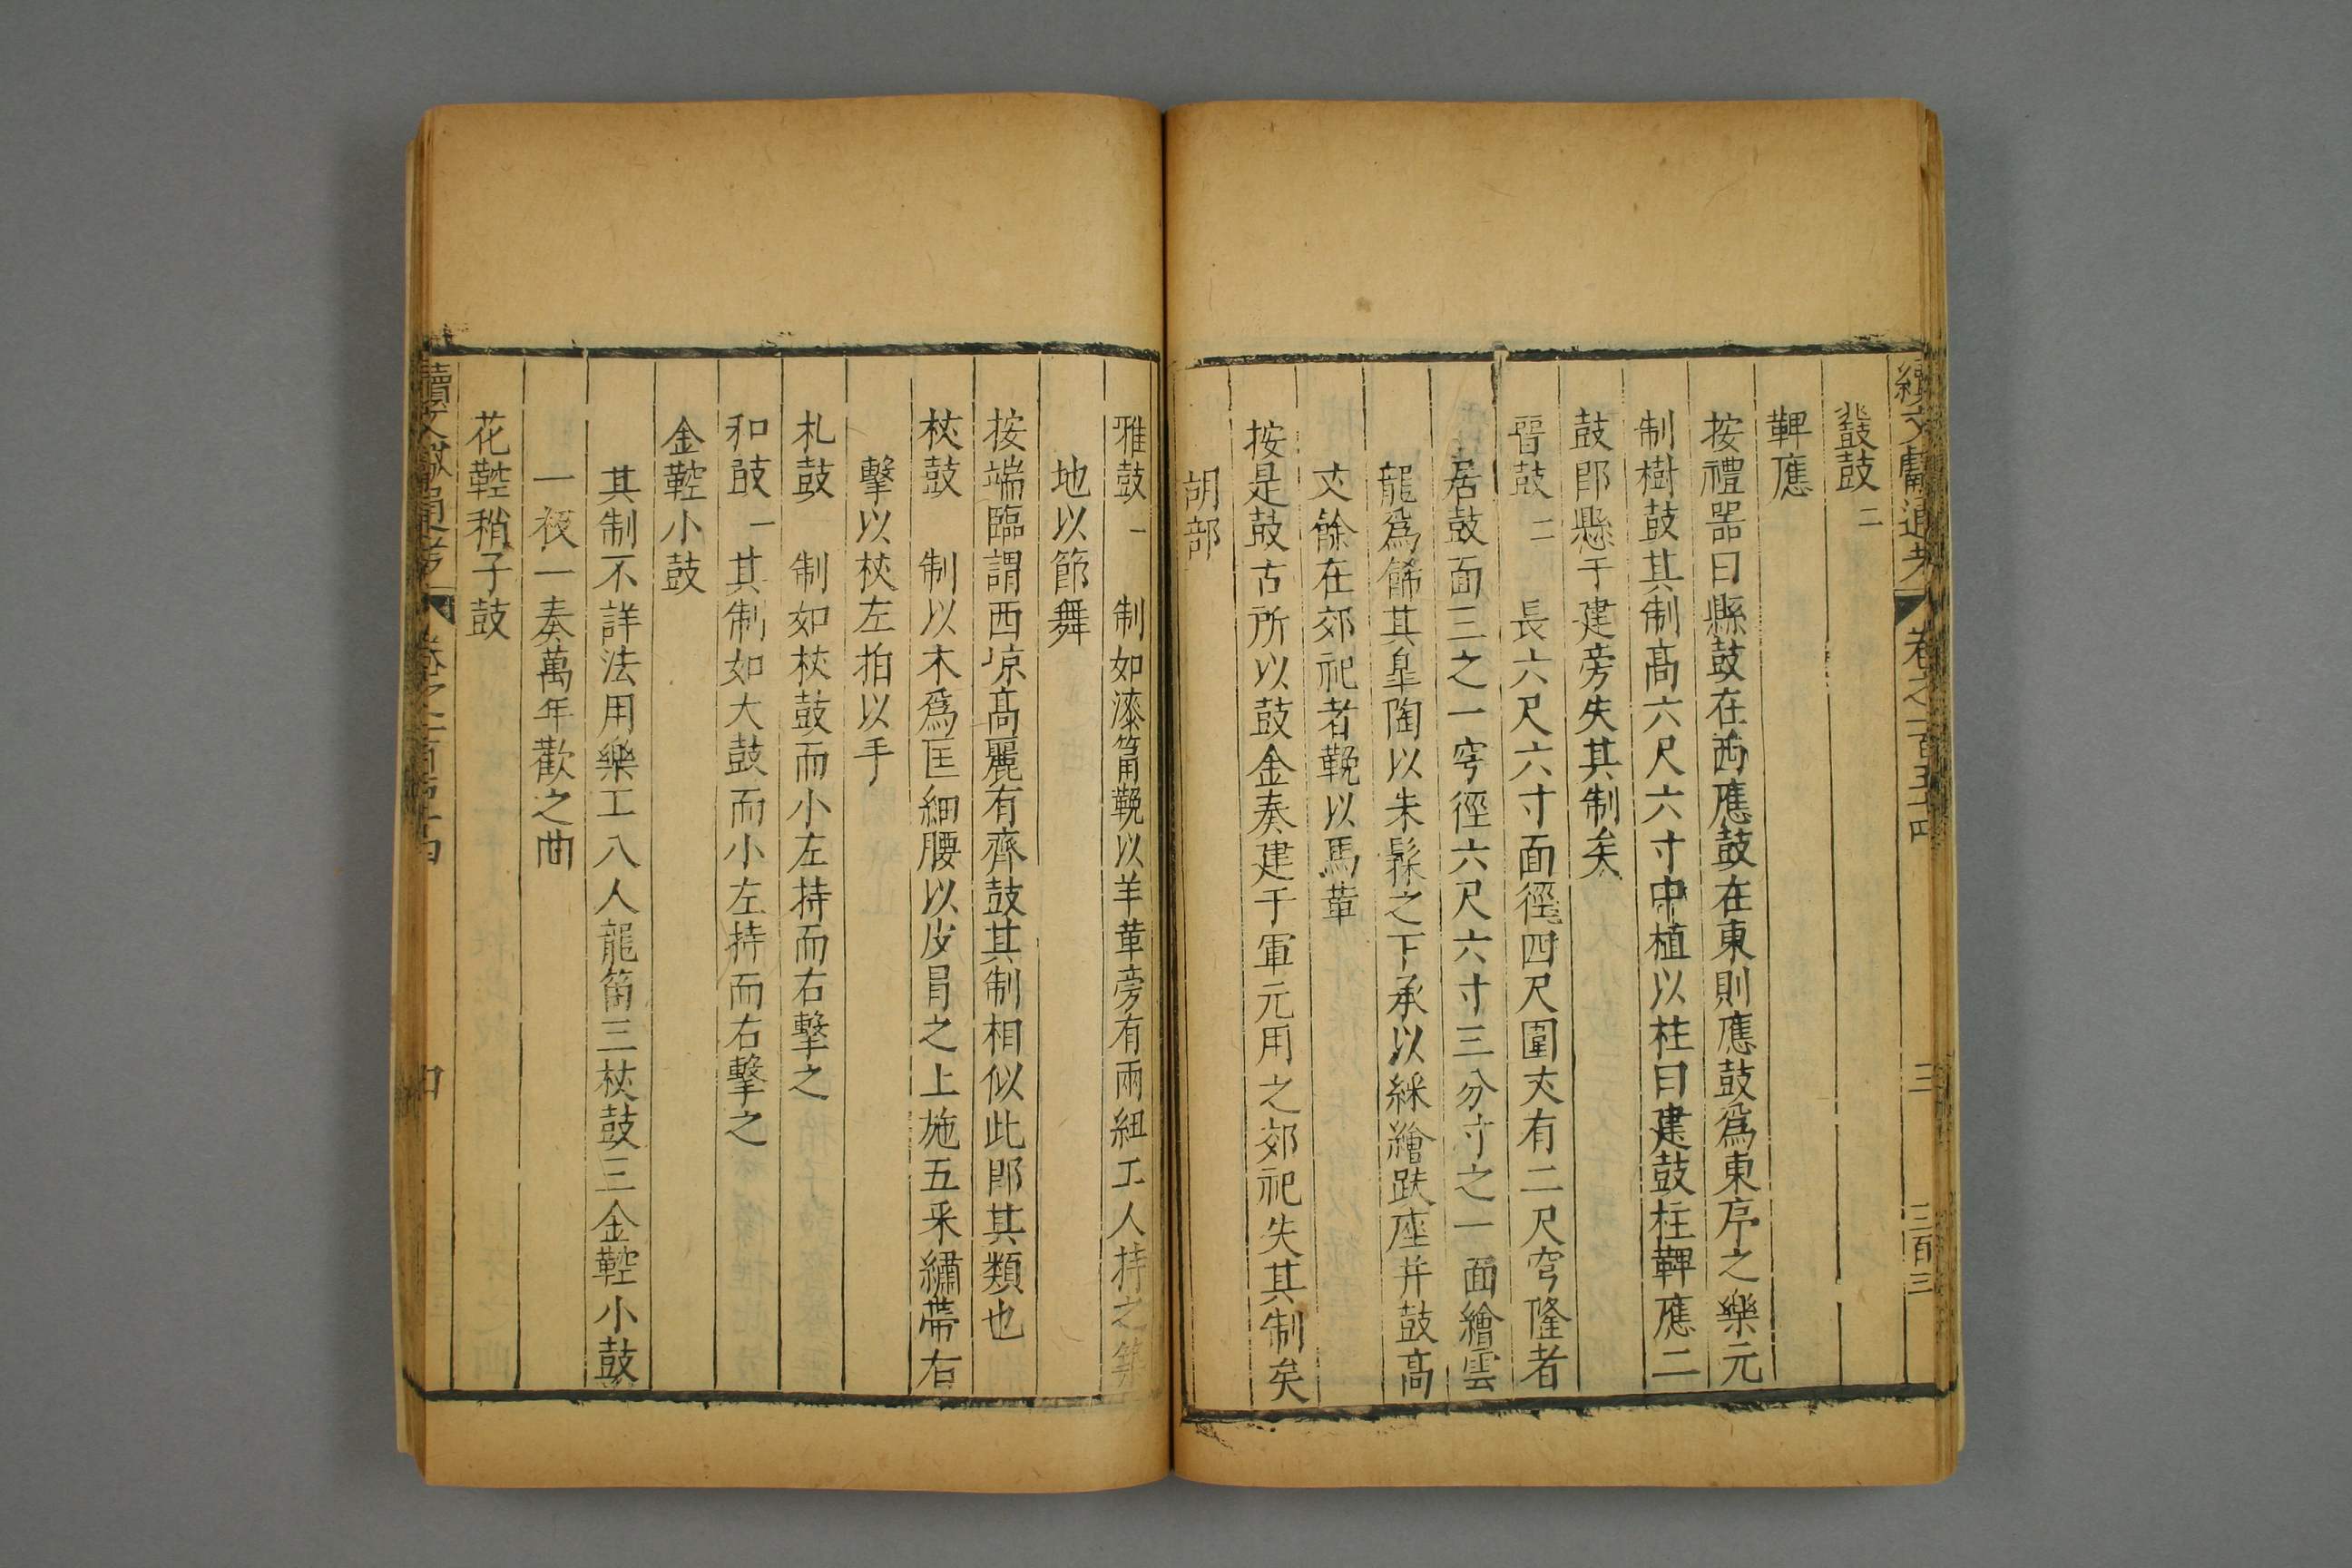 續文獻通考 卷之一百五十四 三 三百三
鼗鼓 二
鞞應
按禮器曰縣鼓在西應鼓在東則應鼓爲東序之樂元
制樹鼓其制高六尺六寸中植以柱曰建鼓柱鞞應二
鼓卽懸于建旁失其制矣
晉鼓 二 長六尺六寸面徑四尺圍丈有二尺穹隆者
居鼓面三之一穹徑六尺六寸三分寸之一面繪雲
龍爲餙其臯陶以朱髹之下承以綵繪趺座并鼓高
丈餘在郊祀者鞔以馬革
按是鼓古所以鼓金奏建于軍元用之郊祀失其制矣
胡部
雅鼓 一 制如漆筩鞔以羊革旁有兩紐工人持之築
地以節舞
按端臨謂西凉高麗有齊鼓其制相似此卽其類也
杖鼓 制以木爲匡細腰以皮冒之上施五采繡帶右
擊以杖左拍以手
札鼓 制如杖鼓而小左持而右擊之
和鼓 一 其制如大鼓而小左持而右擊之
金鞚小鼓
其制不詳法用樂工八人龍笛三杖鼓三金鞚小鼓
一夜一奏萬年歡之曲
花鞚稍子鼓
續文獻通考 卷之一百五十四 四